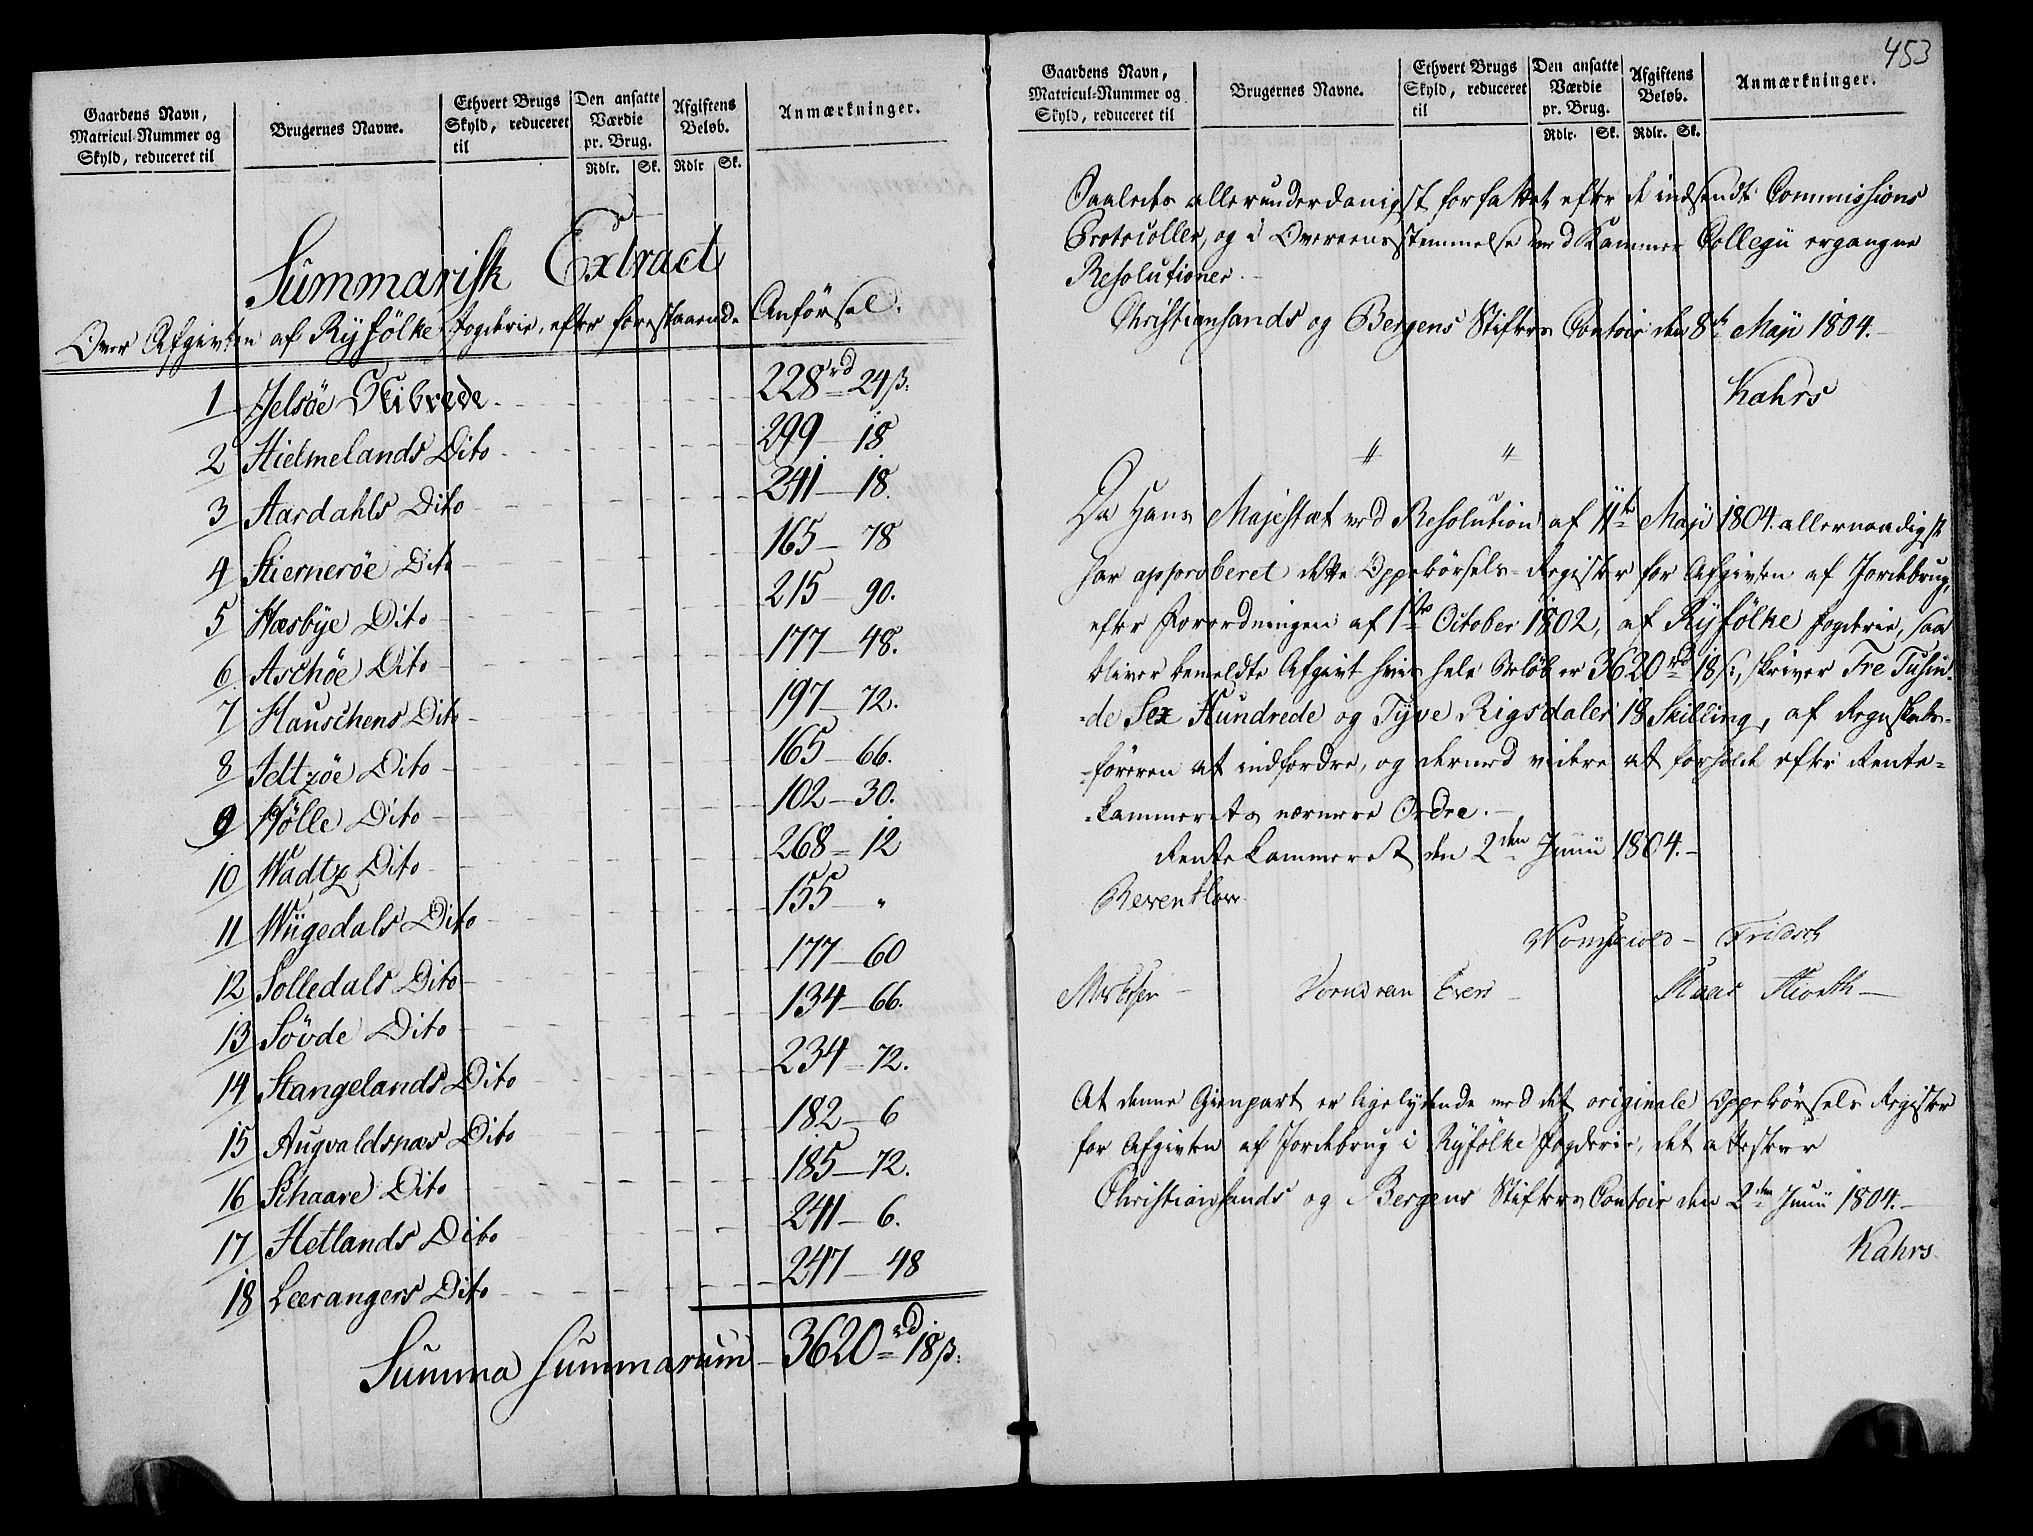 Gaardens Navn,
Matricul-Nummer og
Skyld, reduceret til
Brugernes Navne.
Ethvert Brugs
Skyld, reduceret
til
Den ansatte
Værdie
pr. Brug.
Rdlr. Sk.
Afgiftens
Beløb.
Rdlr Sk.
Anmærkninger.
Summarisk Extract
Over Afgivten af Ryfölke Fogderie, efter forestaaende Anførsel.
1 Jelsöe Skibrede 228 rd 24 ß:
2 Hielmelands Dito 299 - 18
3 Aardahls Dito 241 - 18.
4 Stierneröe Dito 165 - 78
5 Hæsbye Dito 215 - 90.
6 Aschöe Dito 177 - 48.
7 Hauschens Dito 197 - 72.
8 Idtzöe Dito 165 - 66.
9 Hölle Dito 102 - 30.
10 Wadtz Dito 268 - 12
11 Wiigedals Dito 155 "
12 Solledals Dito 177 - 60
13 Sövde Dito 134 - 66.
14 Stangelands Dito 234 - 72.
15 Augvaldsnæs Dito 182 - 6
16 Schaare Dito 185 - 72.
17 Hetlands Dito 241 - 6.
18 Leerangers Dito 247 - 48
Summa Summarum - 3620 rd 18 ß:
453
Gaardens Navn,
Matricul-Nummer og
Skyld, reduceret til
Brugernes Navne.
Ethvert Brugs
Skyld, reduceret
til
Den ansatte
Værdie
pr. Brug.
Rdlr. Sk.
Afgiftens
Beløb.
Rdlr. Sk.
Anmærkninger.
Saaledes allerunderdanigst forfattet efter de indsendte Commissions
Protocoller, og i Overeensstemmelse med Kammer Collegii ergangne
Resolutioner.
Christiansands og Bergens Stifters Contoir den 8de Maji 1804.
Kahrs
" "
Da Hans Majestæt ved Resolution af 11te Maji 1804 allernaadigst
har approberet dette Oppebörsels-Register for Afgivten af Jordebrug,
efter Forordningen af 1ste October 1802, af Ryfölke Fogderie, saa
bliver bemeldte Afgivt hvis hele Belöb er 3620 rd 18 ß:, skriver Tre Tusin-
-de Sex Hundrede og Tyve Rigsdaler 18 Skilling, af Regnskabs-
-föreren at indfordre, og dermed videre at forholde efter Rente-
-kammerets nærmere Ordre.
Rentekammeret den 2den Junii 1804.
Reventlow
Wormskiold - Fridsch
Vornd ran Evers
Kaas Hiorth
At denne Gienpart er ligelydende med det originale Oppebörsels Register
for Afgivten af Jordebrug i Ryfölke Fogderie, det attesterer
Christiansands og Bergens Stifters Contoir den 2den Junii 1804.
Kahrs.